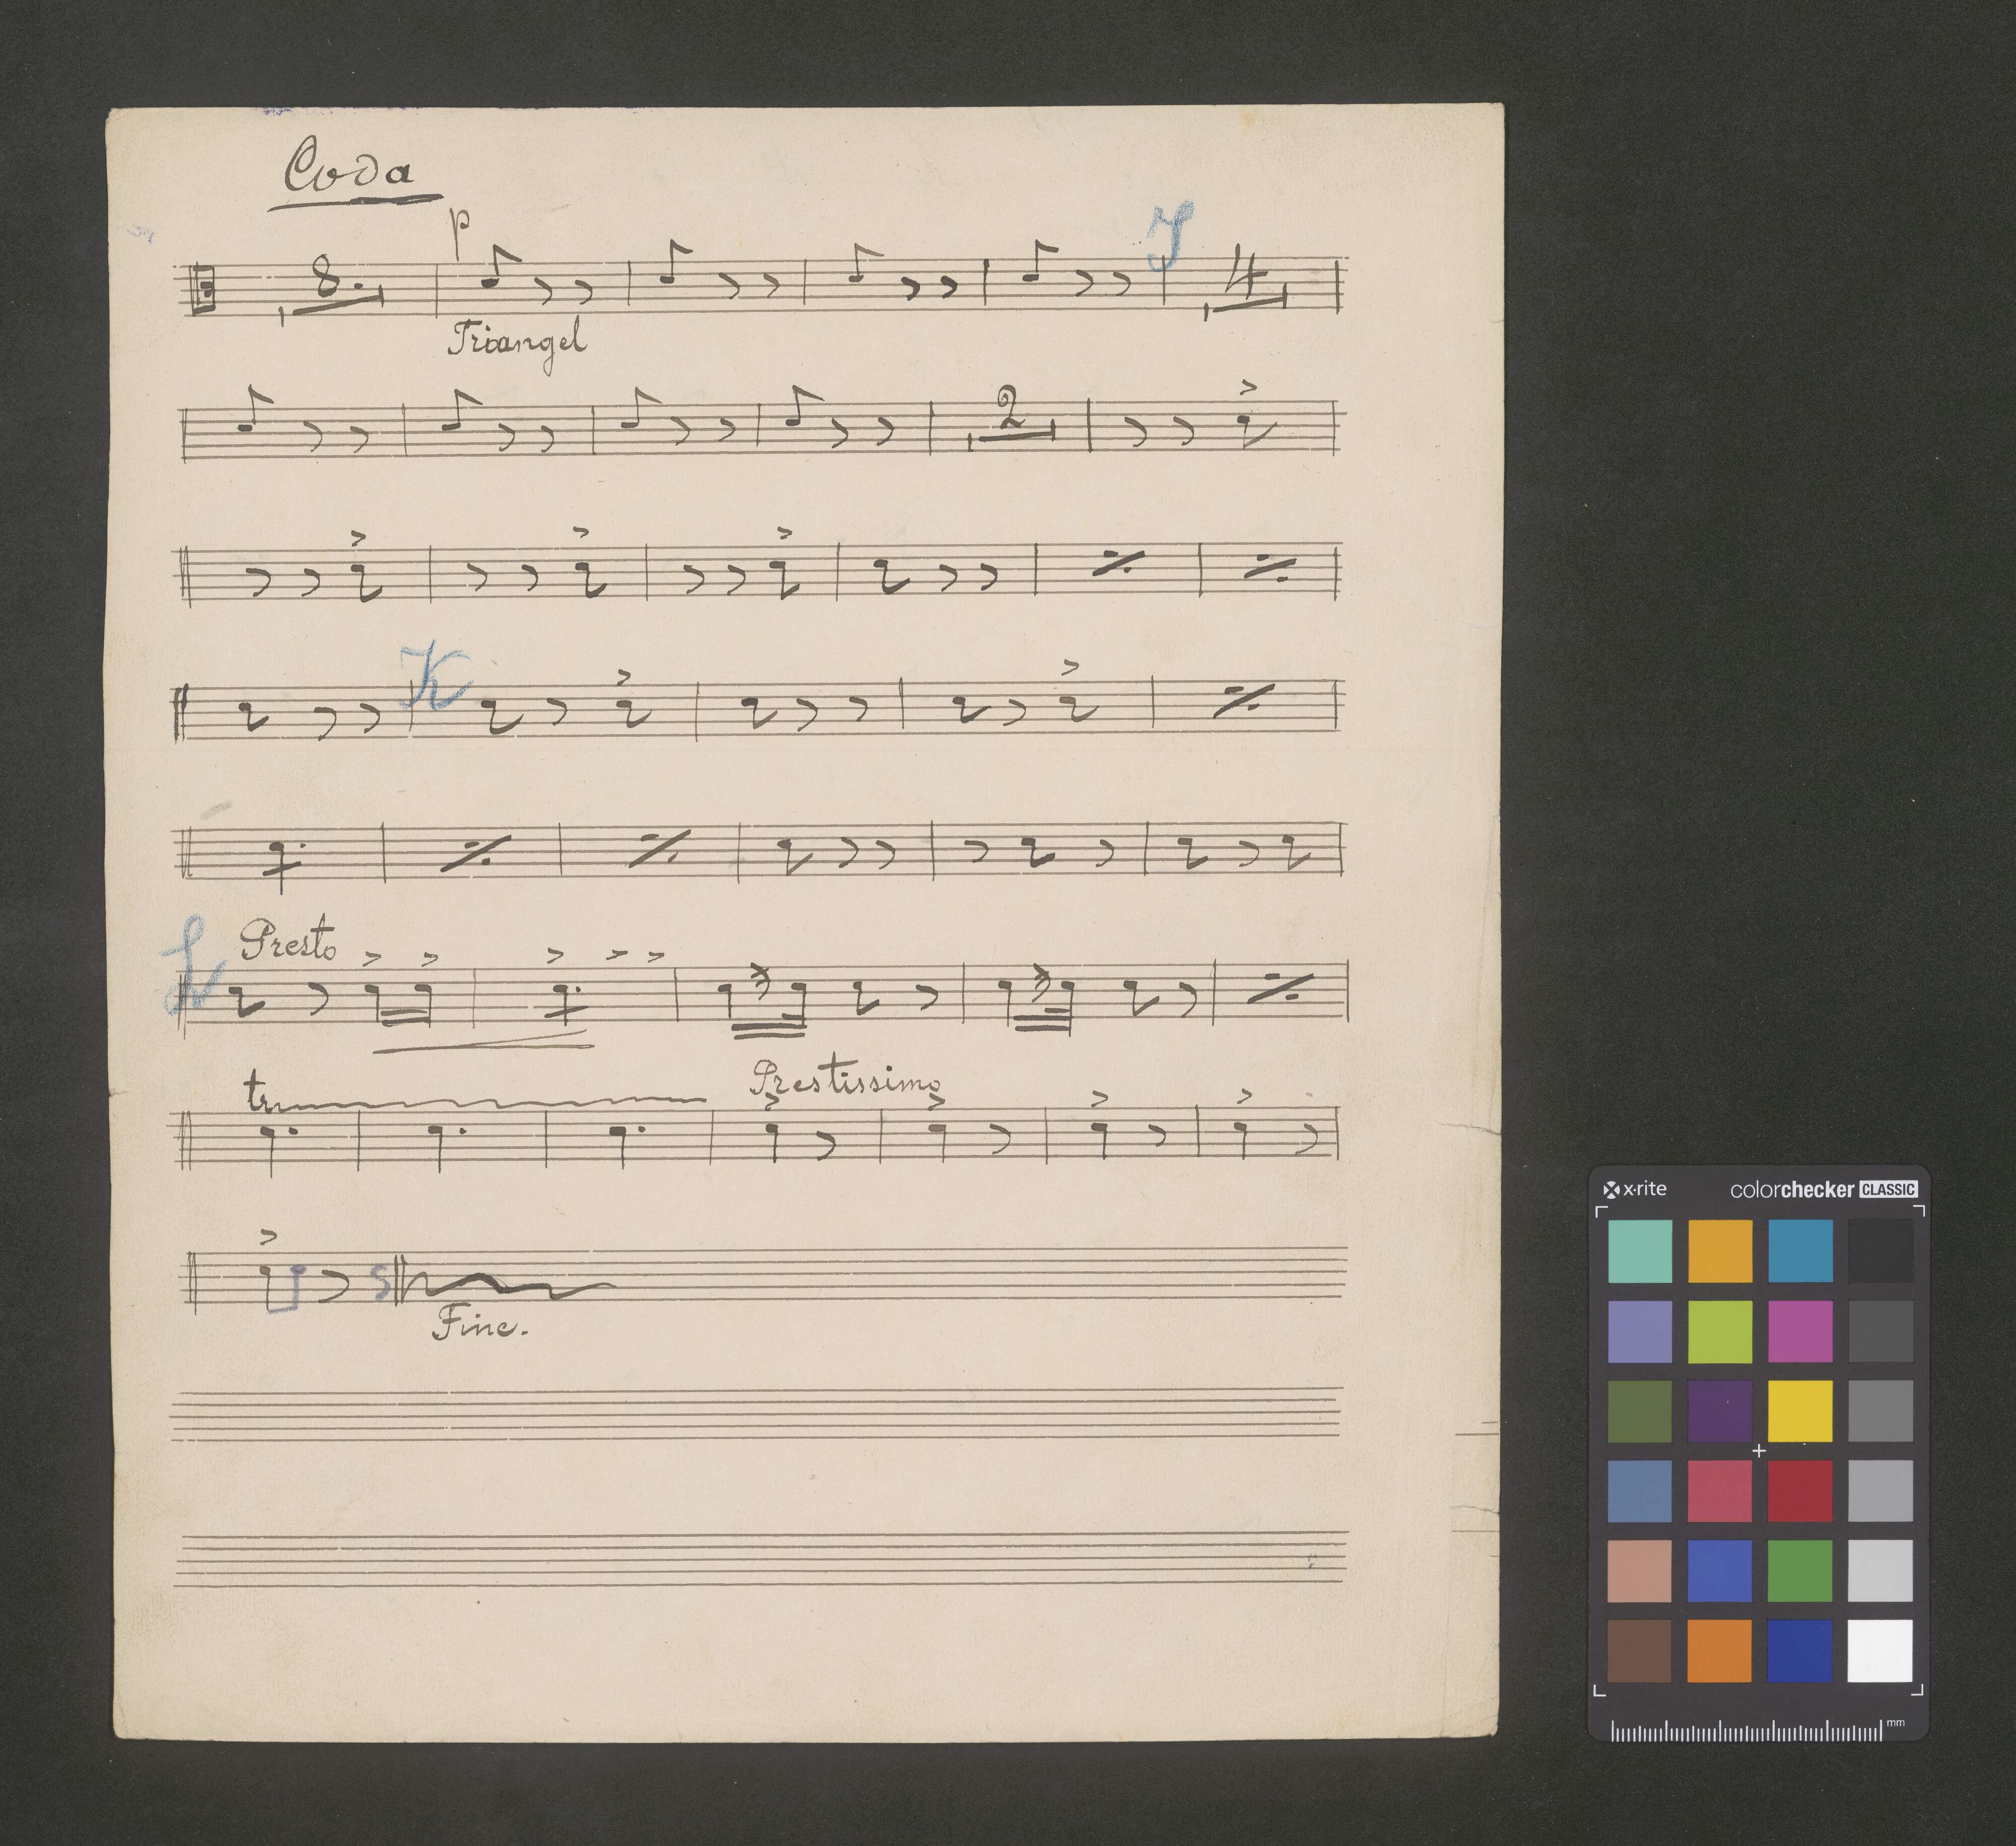 Coda
p
J
8.
4
Triangel
2
K
L
Presto
tr
Prestissimo
S
Fine.
x·rite colorchecker CLASSIC
mm